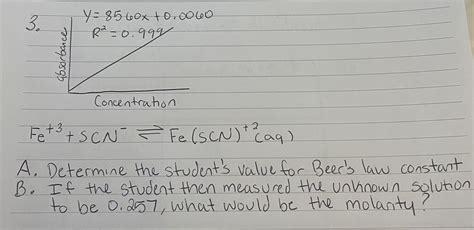 3.
y=8560x+0.0060
R²=0.999
absorbance
Concentration
Fe⁺³ + SCN⁻ ⇌ Fe(SCN)⁺²(aq)
A. Determine the student's value for Beer's law constant
B. If the student then measured the unknown solution
to be 0.257, what would be the molarity?